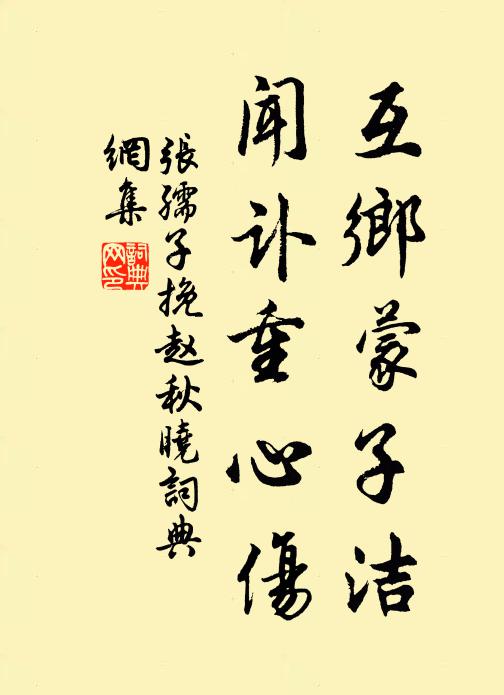 互鄉蒙子洁
闻讣重心傷
張孺子挽赵秋曉詞典
網集
詞典
网印